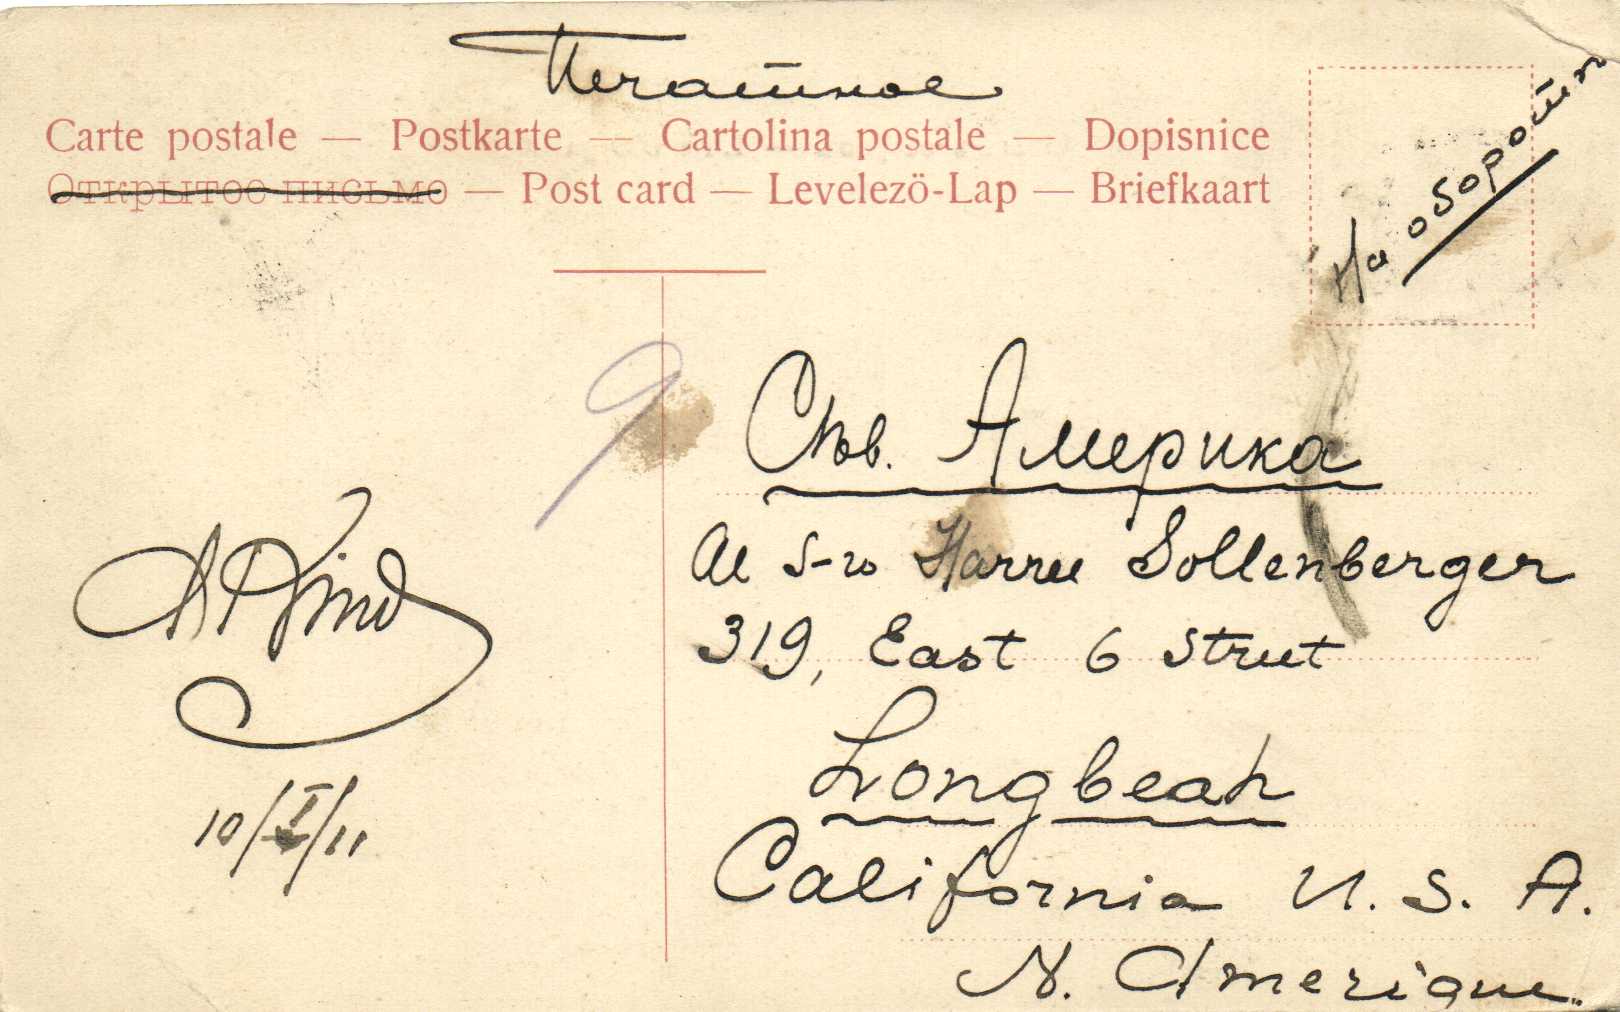 Печатное
Carte postale — Postkarte — Cartolina postale — Dopisnice
Открытое письмо — Post card — Levelezö-Lap — Briefkaart
На оборотѣ
9
Сѣв. Америка
Harree Sollenberger
319, East 6 Street
Longbeah
10/I/11
California U. S. A.
N. Amerique